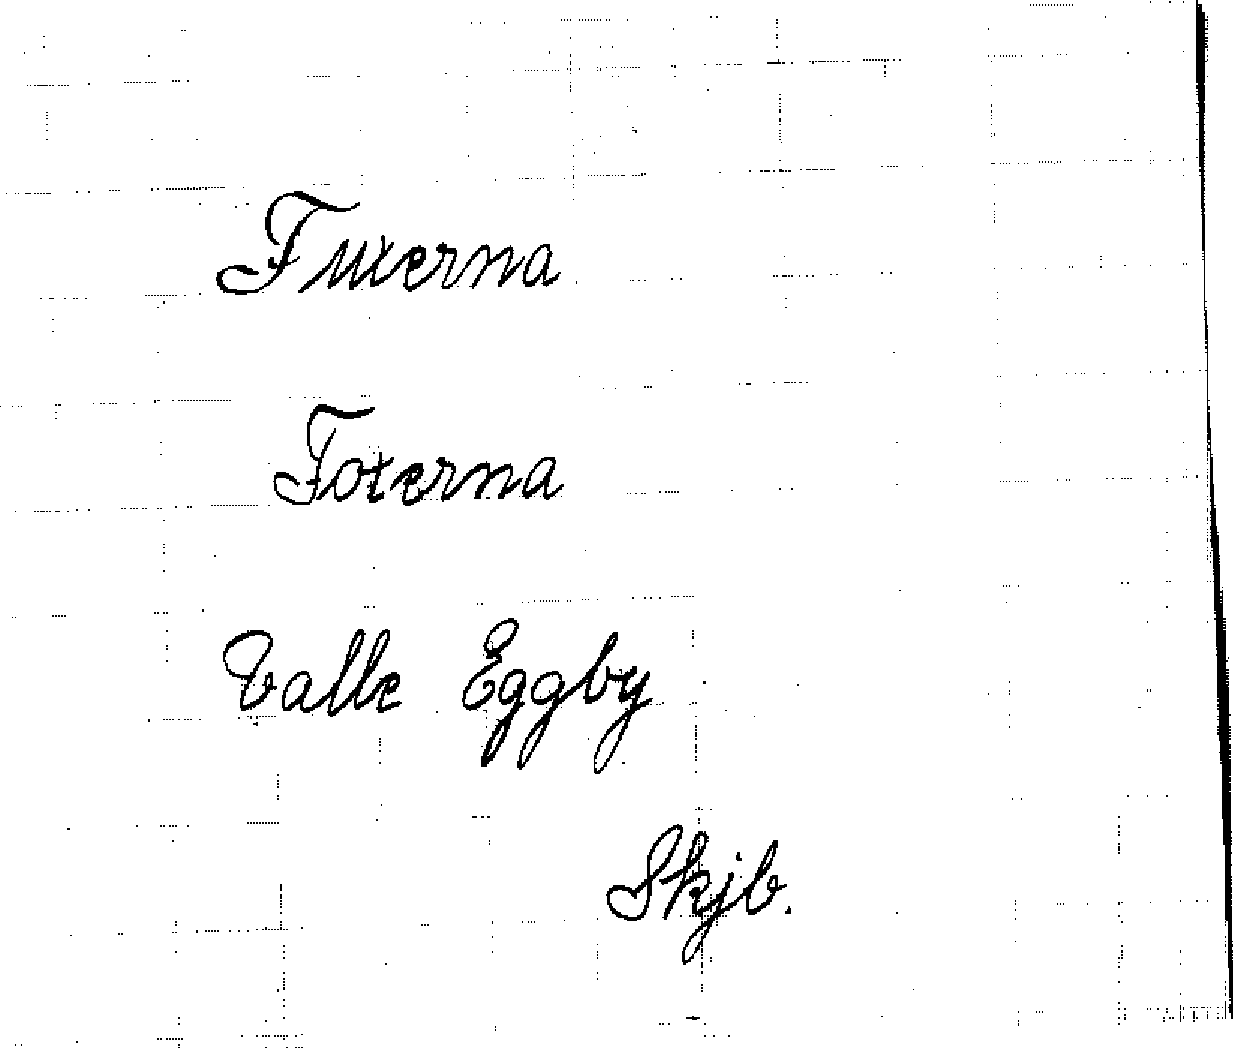 Futerna
Foterna
Valle Eggby
Skjb.